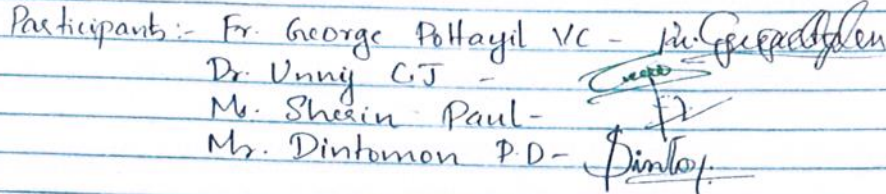 Participants:- Fr. George Pottayil VC -
Dr. Unnij C.J -
Mr. Sherin Paul-
Mr. Dintomon P.D- Dinto